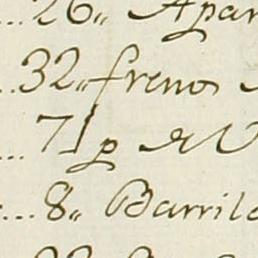 ...26,, Apar
...32,, freno
... 71 p
...8,, Barrile